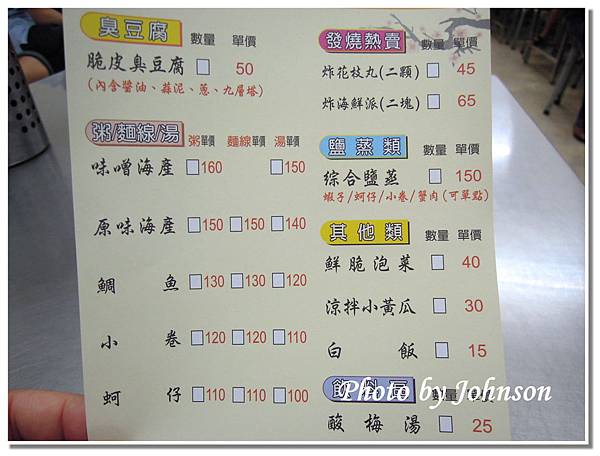 臭豆腐 數量 單價
脆皮臭豆腐 50
(內含醬油、蒜泥、蔥、九層塔)
粥/麵線/湯 粥單價 麵線單價 湯單價
味噌海產 160 150
原味海產 150 150 140
鯛魚 130 130 120
小卷 120 120 110
蚵仔 110 110 100
發燒熱賣 數量 單價
炸花枝丸(二顆) 45
炸海鮮派(二塊) 65
鹽蒸類 數量 單價
綜合鹽蒸 150
蝦子/蚵仔/小卷/蟹肉(可單點)
其他類 數量 單價
鮮脆泡菜 40
涼拌小黃瓜 30
白飯 15
數量
酸梅湯 25
Photo by Johnson